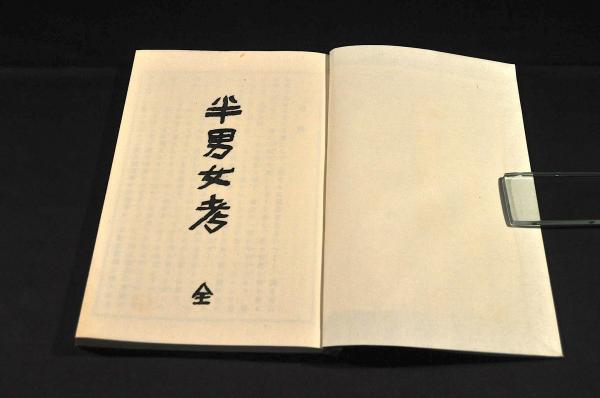 半男女考
全